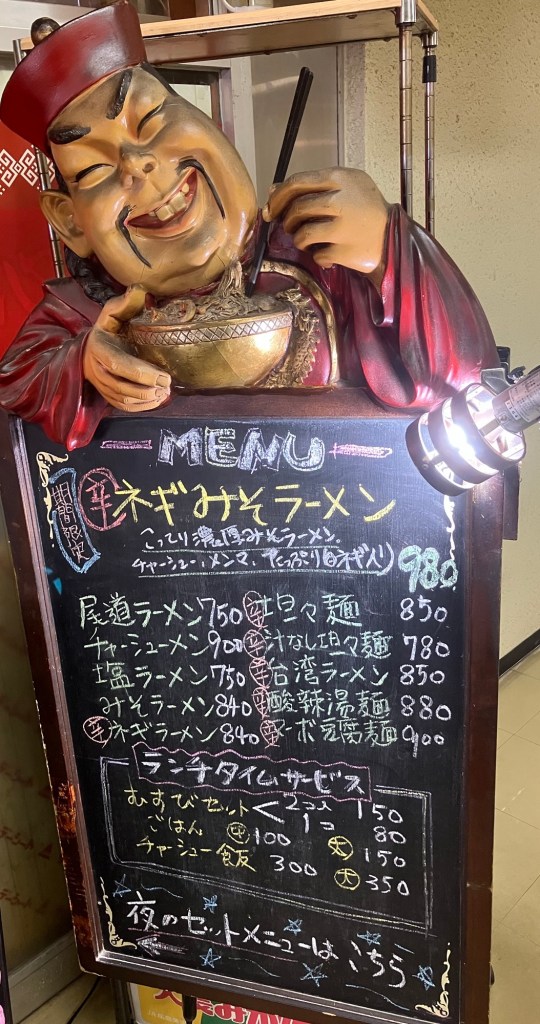 MENU
期間限定
辛ネギみそラーメン
こってり濃厚みそラーメン。
チャーシュー、メンマ、たっぷり白ネギ入り
980
尾道ラーメン750
チャーシューメン900
塩ラーメン750
みそラーメン840
辛ネギラーメン840
辛坦々麺 850
辛汁なし坦々麺 780
辛台湾ラーメン 850
辛酸辣湯麺 880
辛マーボ豆腐麺 900
ランチタイムサービス
むすびセット 2コ入 150
1コ 80
ごはん 中100 大150
チャーシュー飯 300 大350
夜のセットメニューはこちら